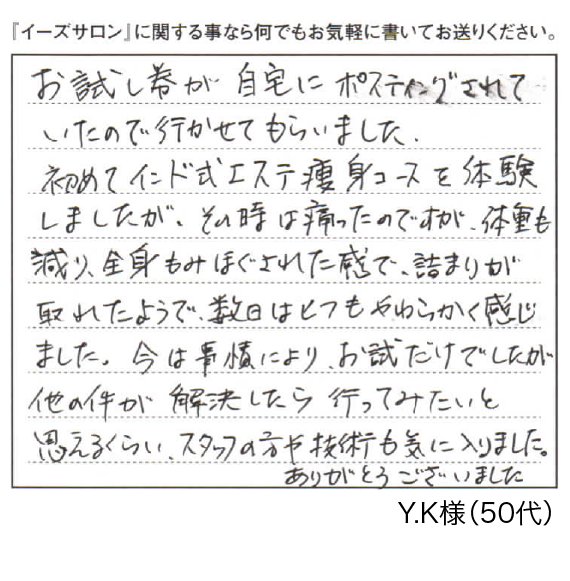 『イーズサロン』に関する事なら何でもお気軽に書いてお送りください。
お試し券が自宅にポスティングされて
いたので行かせてもらいました.
初めてインド式エステ痩身コースを体験
しましたが、その時は痛ったのですが、体重も
減り、全身もみほぐされた感で、詰まりが
取れたようで、数日はとてもやわらかく感じ
ました。今は事情により、お試だけでしたが
他の件が解決したら行ってみたいと
思えるくらい、スタッフの方や技術も気に入りました。
ありがとうございました
Y.K様（50代）